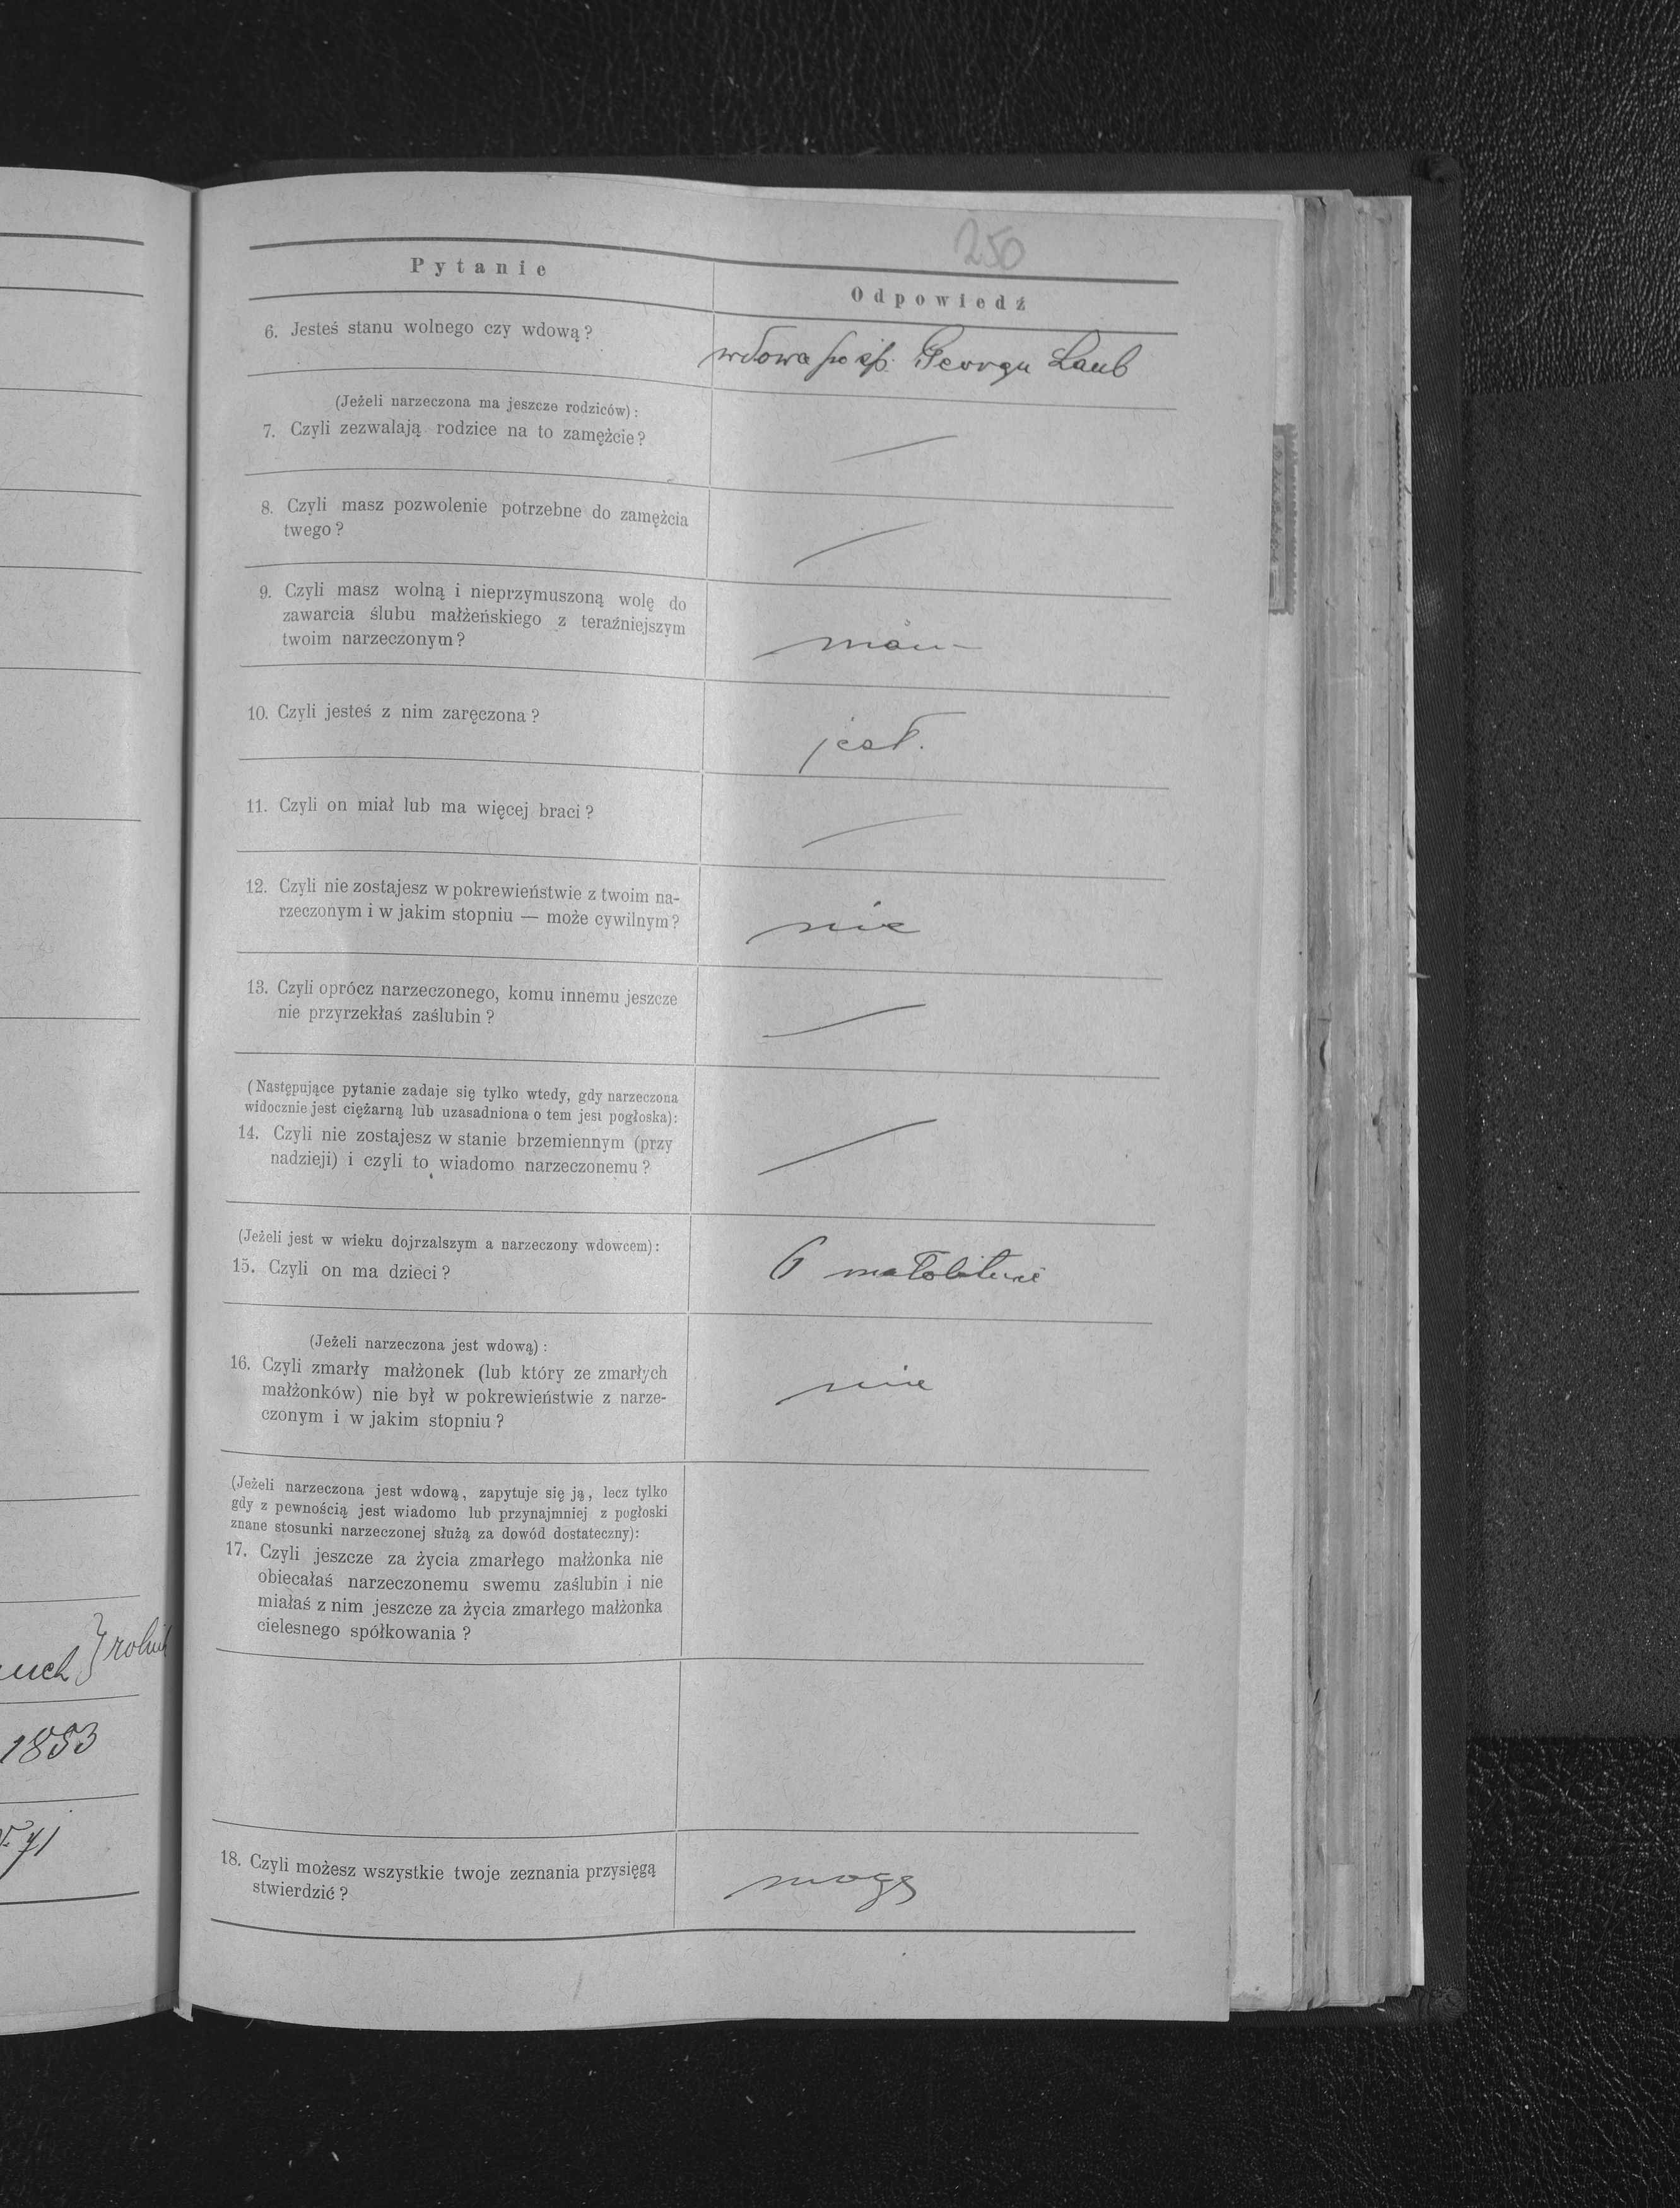 250
Pytanie
Odpowiedź
6. Jesteś stanu wolnego czy wdową?
wdowa po śp. Georgu Laub
(Jeżeli narzeczona ma jeszcze rodziców):
7. Czyli zezwalają rodzice na to zamężcie?
8. Czyli masz pozwolenie potrzebne do zamężcia
twego?
9. Czyli masz wolną i nieprzymuszoną wolę do
zawarcia ślubu małżeńskiego z teraźniejszym
twoim narzeczonym?
mam
10. Czyli jesteś z nim zaręczona?
jest.
11. Czyli on miał lub ma więcej braci?
12. Czyli nie zostajesz w pokrewieństwie z twoim na-
rzeczonym i w jakim stopniu — może cywilnym?
nie
13. Czyli oprócz narzeczonego, komu innemu jeszcze
nie przyrzekłaś zaślubin?
(Następujące pytanie zadaje się tylko wtedy, gdy narzeczona
widocznie jest ciężarną lub uzasadniona o tem jest pogłoska):
14. Czyli nie zostajesz w stanie brzemiennym (przy
nadzieji) i czyli to wiadomo narzeczonemu?
(Jeżeli jest w wieku dojrzalszym a narzeczony wdowcem):
15. Czyli on ma dzieci?
6 małoletnie
(Jeżeli narzeczona jest wdową):
16. Czyli zmarły małżonek (lub który ze zmarłych
małżonków) nie był w pokrewieństwie z narze-
czonym i w jakim stopniu?
nie
(Jeżeli narzeczona jest wdową, zapytuje się ją, lecz tylko
gdy z pewnością jest wiadomo lub przynajmniej z pogłoski
znane stosunki narzeczonej służą za dowód dostateczny):
17. Czyli jeszcze za życia zmarłego małżonka nie
obiecałaś narzeczonemu swemu zaślubin i nie
miałaś z nim jeszcze za życia zmarłego małżonka
cielesnego spółkowania?
18. Czyli możesz wszystkie twoje zeznania przysięgą
stwierdzić?
mogę
1853
71